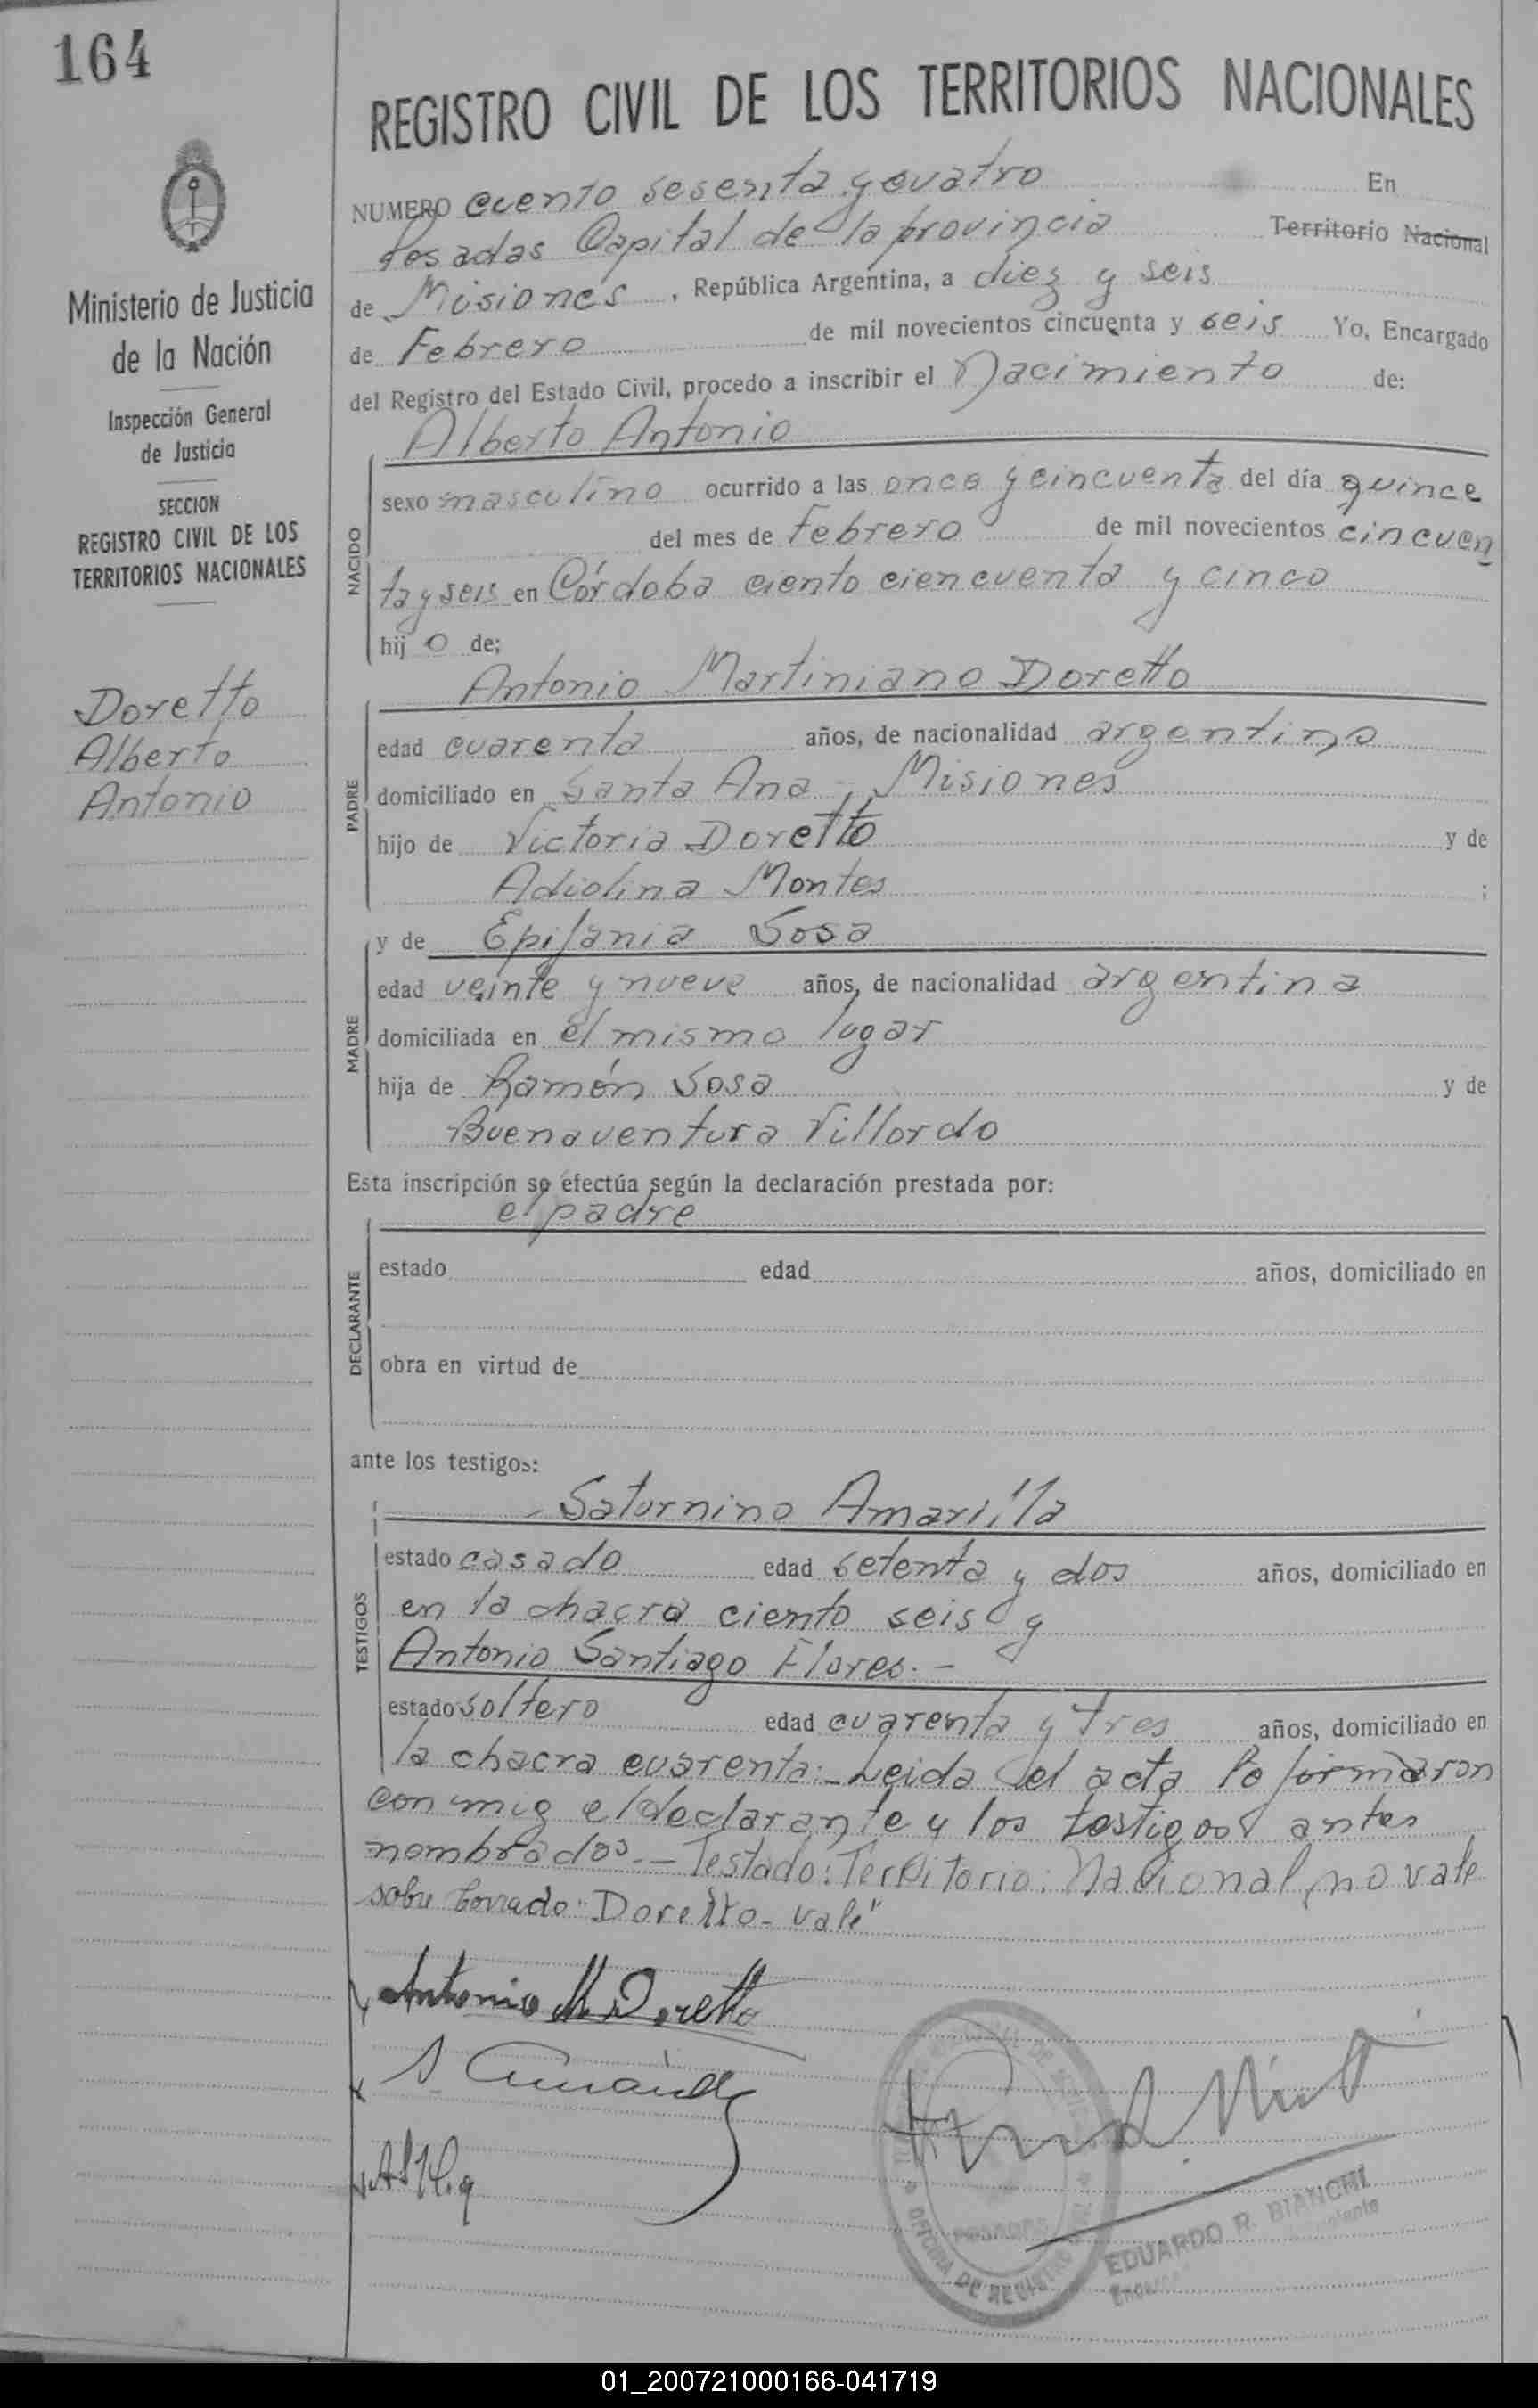 164
Ministerio de Justicia
de la Nación
Inspección General
de Justicia
SECCION
REGISTRO CIVIL DE LOS
TERRITORIOS NACIONALES
Doretto
Alberto
Antonio
REGISTRO CIVIL DE LOS TERRITORIOS NACIONALES
NUMERO ciento sesenta y cuatro En
Posadas Capital de la provincia Territorio Nacional
de Misiones, República Argentina, a diez y seis
de Febrero de mil novecientos cincuenta y seis Yo, Encargado
del Registro del Estado Civil, procedo a inscribir el Nacimiento de:
Alberto Antonio
NACIDO
sexo masculino ocurrido a las once y cincuenta del día quince
del mes de Febrero de mil novecientos cincuen
ta y seis en Córdoba ciento ciencuenta y cinco
hij o de;
Antonio Martiniano Doretto
PADRE
edad cuarenta años, de nacionalidad argentino
domiciliado en Santa Ana, Misiones
hijo de Victoria Doretto y de
Adiolina Montes ;
y de Epifania Sosa
MADRE
edad veinte y nueve años, de nacionalidad argentina
domiciliada en el mismo lugar
hija de Ramón Sosa y de
Buenaventura Villordo
Esta inscripción se efectúa según la declaración prestada por:
el padre
DECLARANTE
estado edad años, domiciliado en
obra en virtud de
ante los testigos:
Saturnino Amarilla
TESTIGOS
estado casado edad setenta y dos años, domiciliado en
en la chacra ciento seis y
Antonio Santiago Flores.-
estado soltero edad cuarenta y tres años, domiciliado en
la chacra cuarenta.- Leida el acta la firmaron
con mig el declarante y los testigos antes
nombrados.- Testado: Territorio: Nacional, no vale
sobre borrado: Doretto - vale"
Antonio M. Doretto
OFICINA DE REGISTRO
POSADAS
EDUARDO R. BIANCHI
01_200721000166-041719